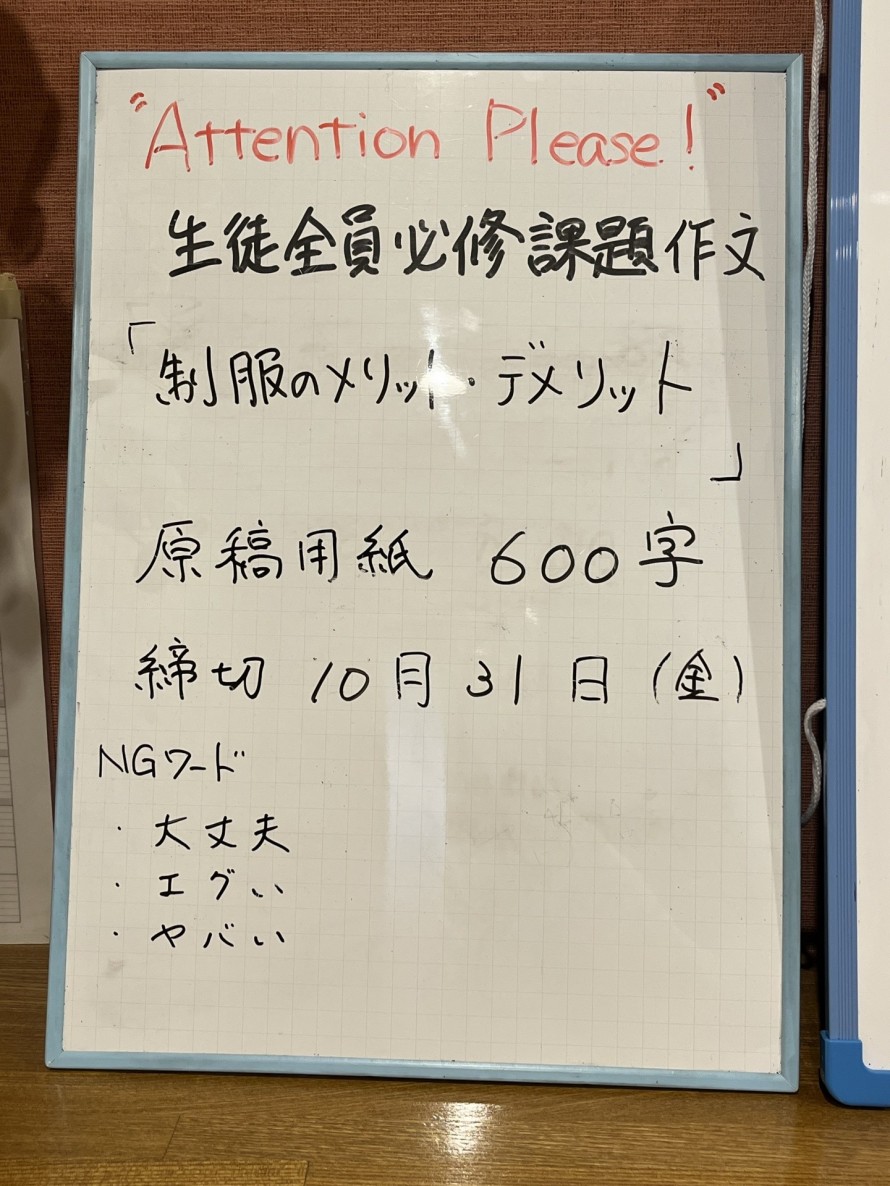 "Attention Please!"
生徒全員必修課題作文
「制服のメリット・デメリット
」
原稿用紙 600字
締切 10月31日(金)
NGワード
・大丈夫
・エグい
・ヤバい